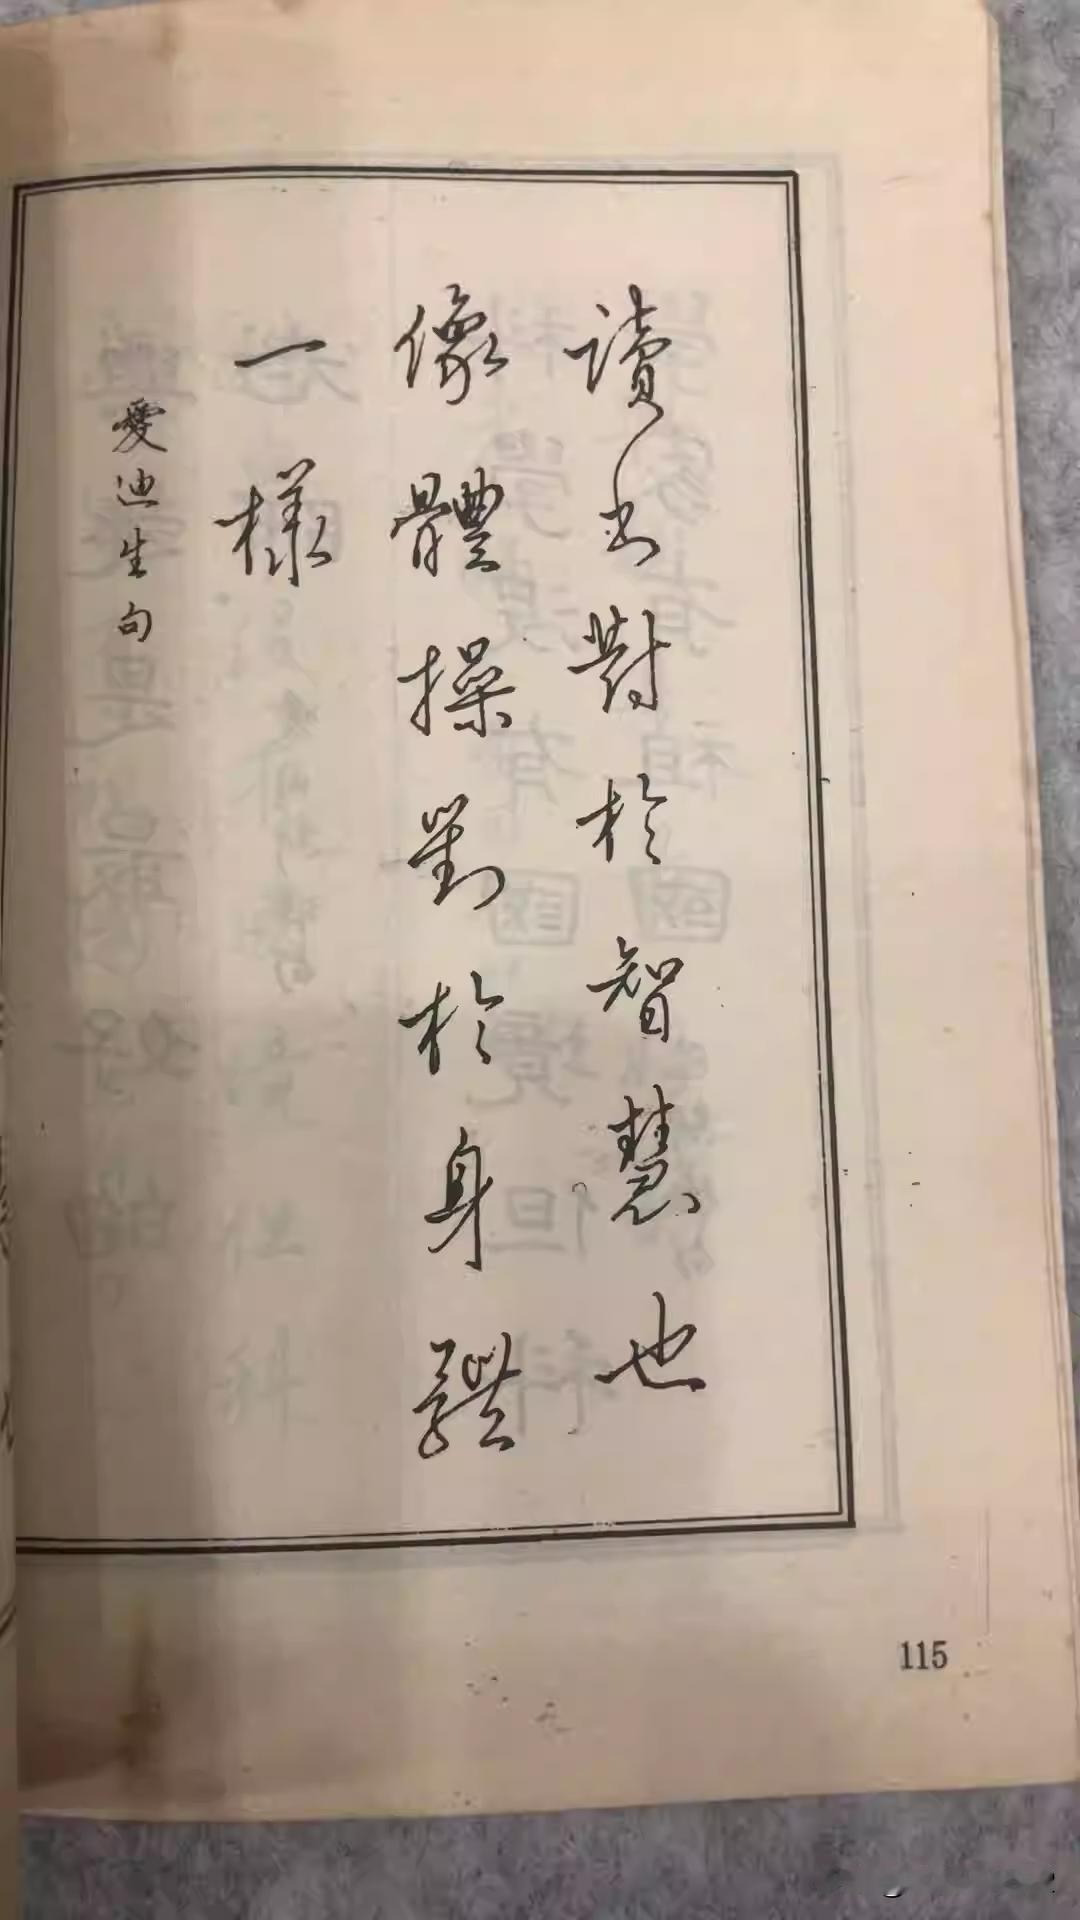 讀书對於智慧也
像體操對於身體
一樣
愛迪生句
115